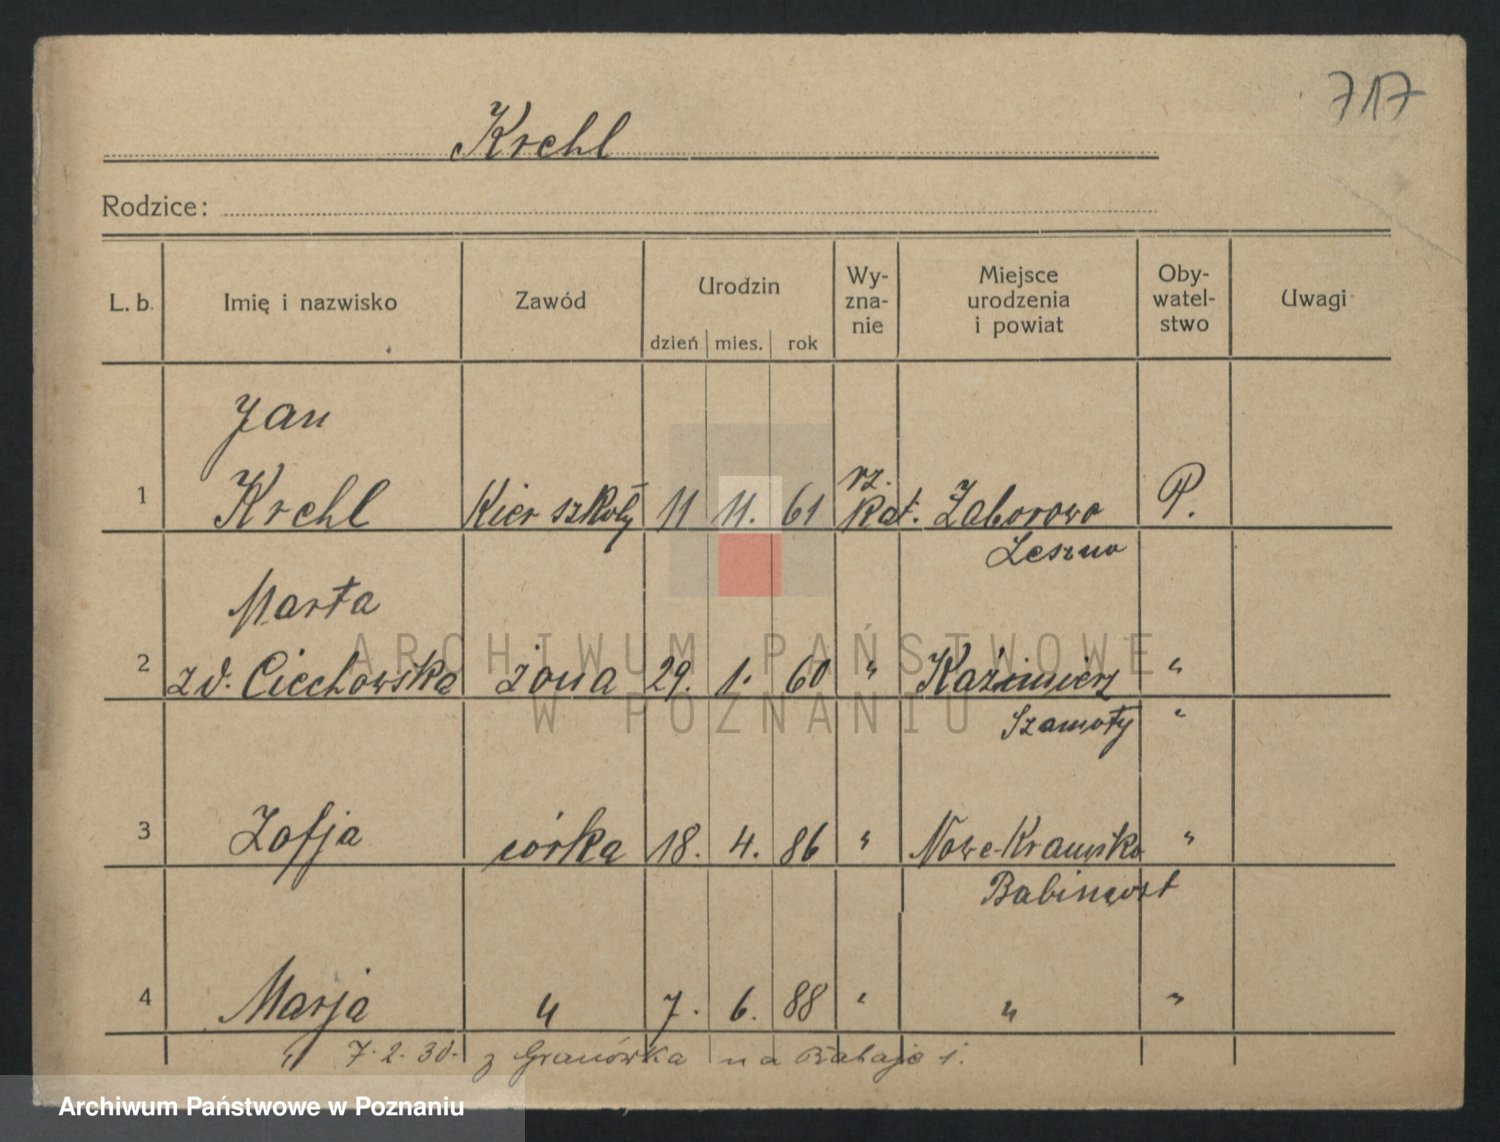 717
Krehl
Rodzice:
L. b. Imię i nazwisko Zawód Urodzin dzień mies. rok Wy-zna-nie Miejsce urodzenia i powiat Oby-watel-stwo Uwagi
Jan
1 Krehl Kier szkoły 11 11. 61 rz. kat. Zaborowo P.
Leszno
Marta
2 zd. Ciechowska żona 29. 1. 60 " Kaźmierz "
Szamoty "
3 Zofja córka 18. 4. 86 " Nowe-Kramsko "
Babimost
4 Marja " 7. 6. 88 " " "
" 7. 2. 30. z Granówka na
ARCHIWUM PAŃSTWOWE
W POZNANIU
Archiwum Państwowe w Poznaniu